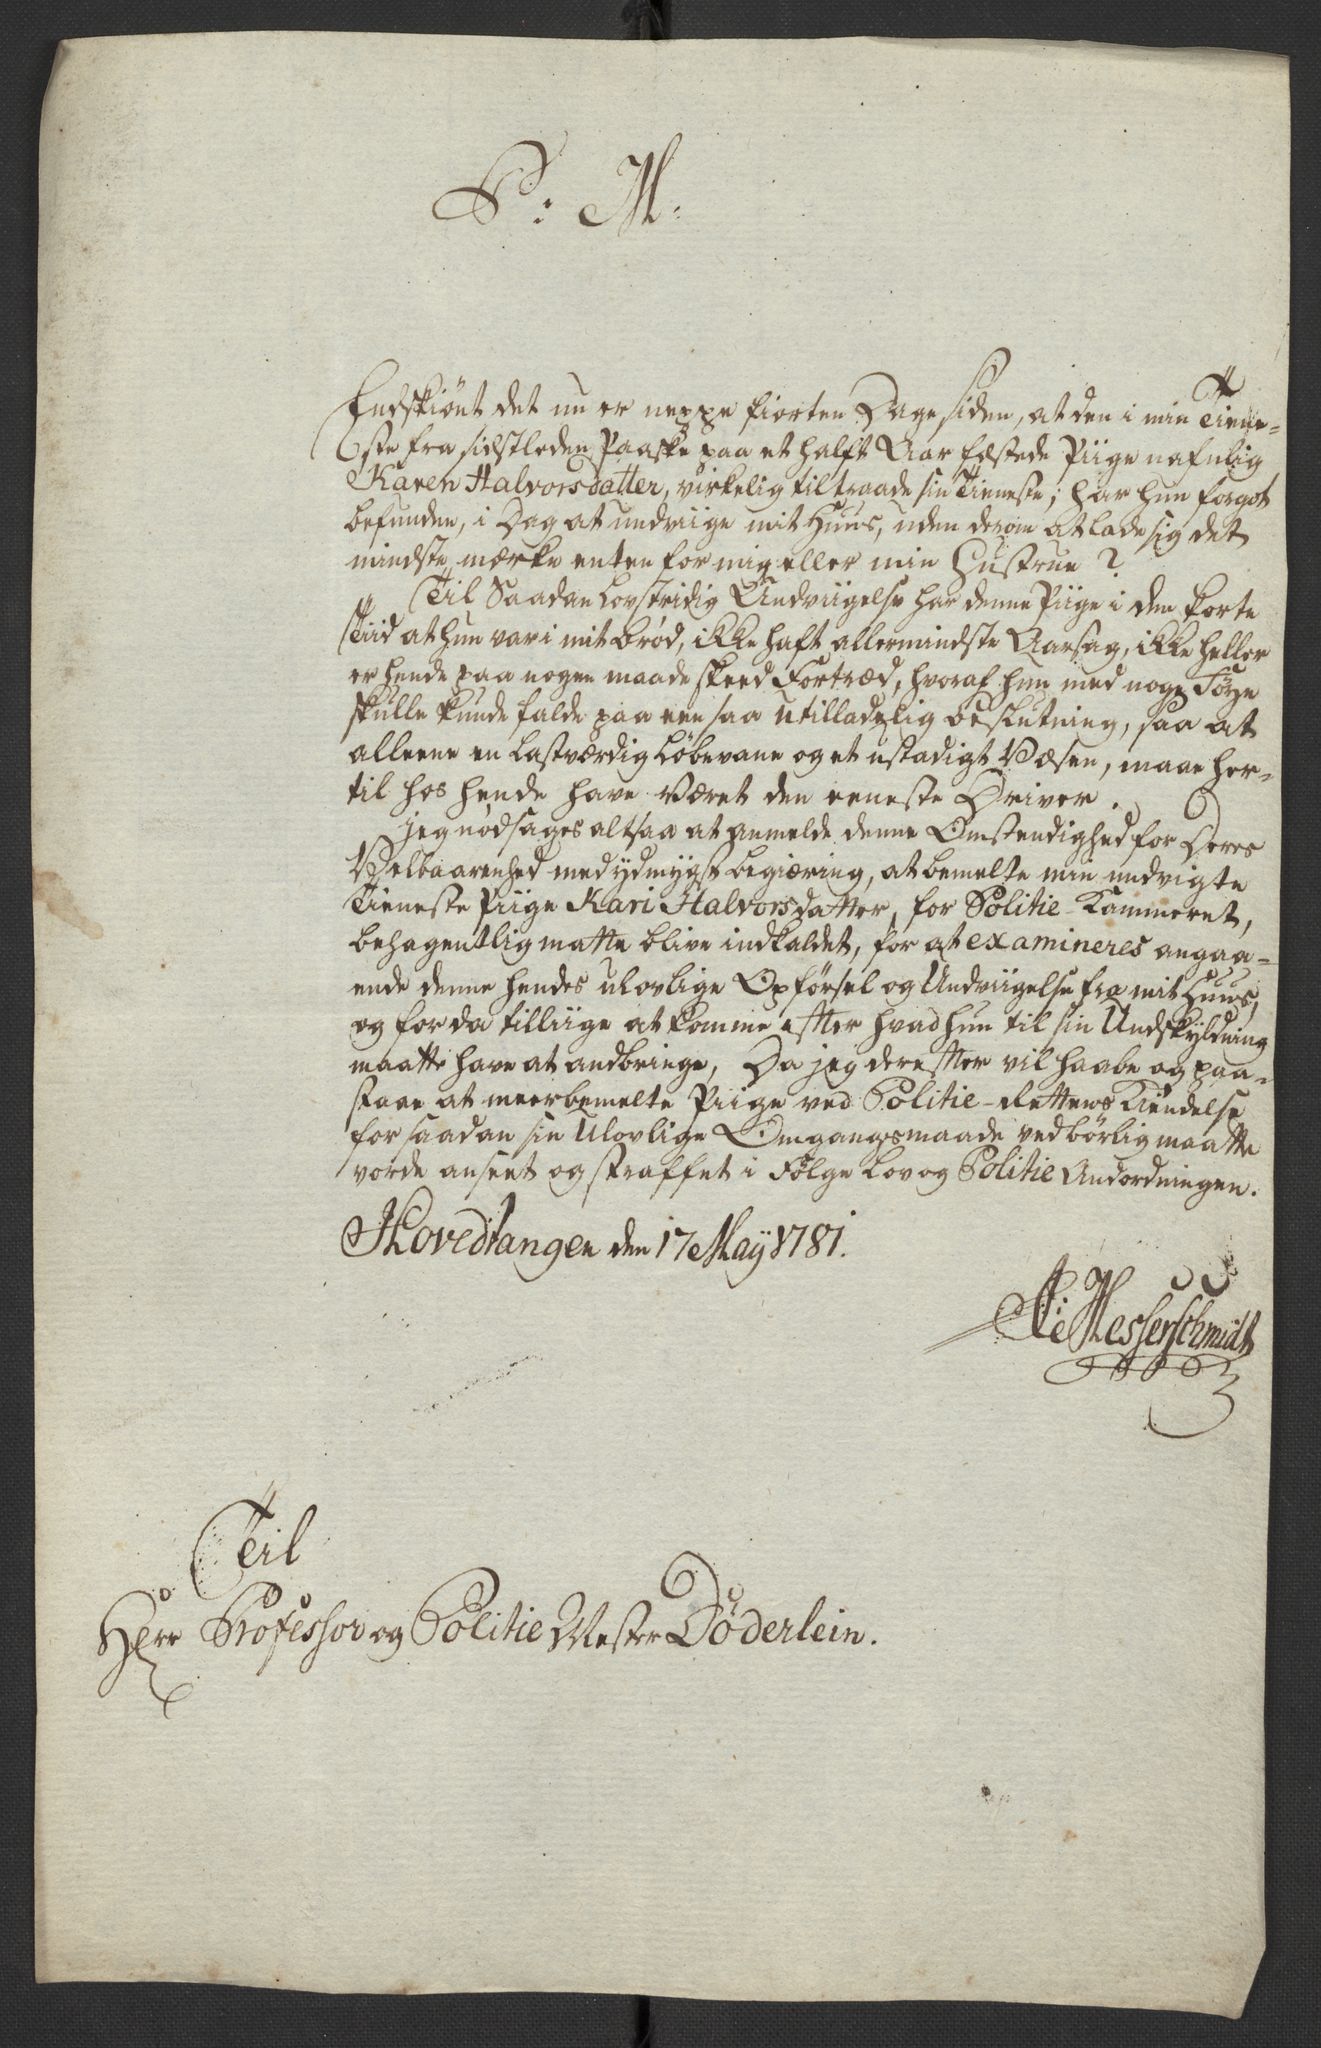 P: M:
Endskiönt det nu er neppe fiorten Dage siden, at den i min Tiene-
ste fra sidstleden Paaske paa et halft Aar fæstede Piige nafnlig
Karen Halvorsdatter, virkelig tiltraade sin Tieneste; har hun forgot
befunden, i Dag at undviige mit Huus, uden derom at lade sig det
mindste mærke enten for mig eller min Hustrue?
Til Saadan Lovstridig Undviigelse har denne Piige i den korte
Tiid at hun var i mit brød, ikke haft allermindste Aarsag, ikke heller
er hende paa nogen maade skeed Fortræd, hvoraf hun med noge Föye
skulle kunde falde paa een saa utilladelig beslutning, saa at
alleene en Lastværdig Löbevane og et ustadigt Væsen, maae her-
til hos hende have Været den eeneste Driver.
jeg nödsages altsaa at anmelde denne Omstendighed for Deres
Velbaarenhed med ydmygst begiæring, at bemelte min undvigte
Tieneste Piige Kari Halvorsdatter, for Politie-Kammeret,
behagentlig matte blive indkaldet, for at examineres angaa-
ende denne hendes ulovlige Opförsel og Undviigelse fra mit Huus,
og for da tilliige at komme efter hvad hun til sin Undskyldning
maatte have at andbringe, Da jeg derefter vil haabe og paa-
staae at meerbemelte Piige ved Politie-Rettens Kiendelse
for saadan sin Ulovlige Omgangsmaade vedbörlig maatte
vorde anseet og straffet i Fölge Lov og Politie Andordningen.
Hovedtangen den 17 May 1781.
Messerschmidt
Til
Herr Professor og Politie Mester Döderlein.